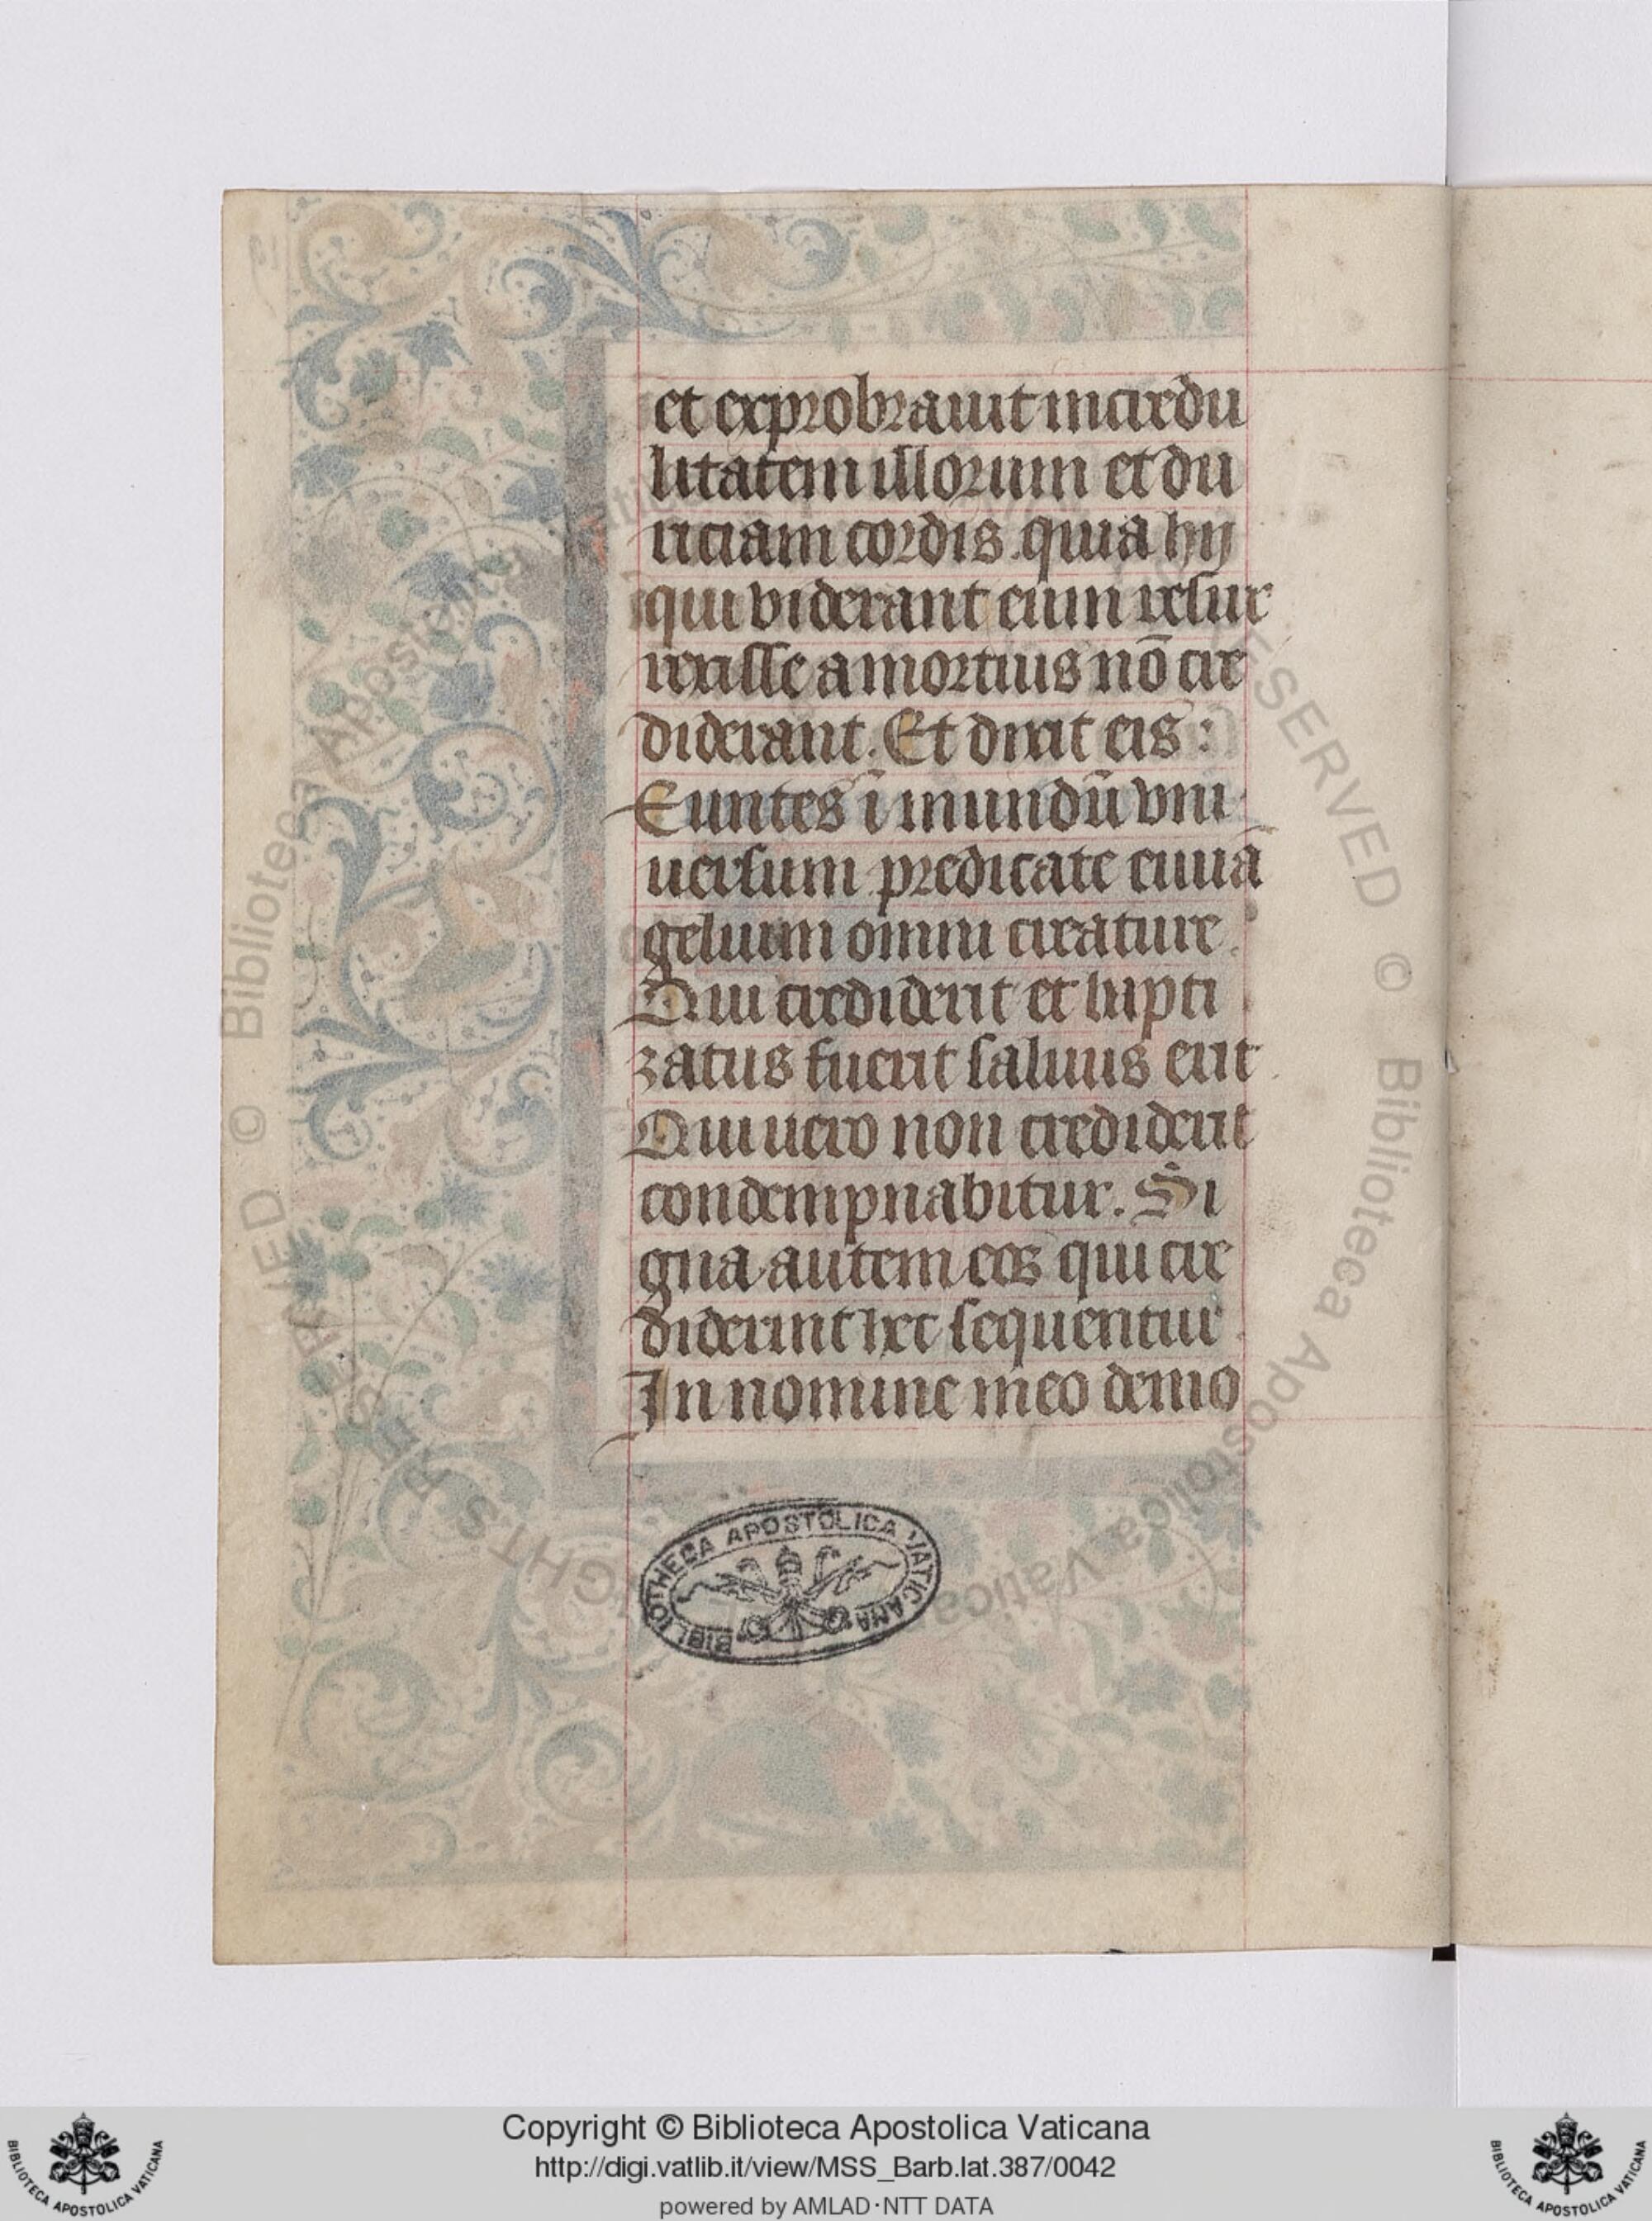 et exprobrauit incredu
litatem illorum et du
riciam cordis. quia hij
qui viderant eum resur
rexisse a mortuis nō cre
diderant. Et dixit eis:
Euntes ī mundū vni
uersum predicate euuā
gelium omni creature.
Qui crediderit et bapti
zatus fuerit saluus erit
Qui uero non crediderit
condempnabitur. Si
gna autem eos qui cre
diderint hec sequentur
In nomine meo demo
BIBLIOTHECA APOSTOLICA VATICANA
Copyright © Biblioteca Apostolica Vaticana
http://digi.vatlib.it/view/MSS_Barb.lat.387/0042
powered by AMLAD·NTT DATA
BIBLIOTECA APOSTOLICA VATICANA
BIBLIOTECA APOSTOLICA VATICANA